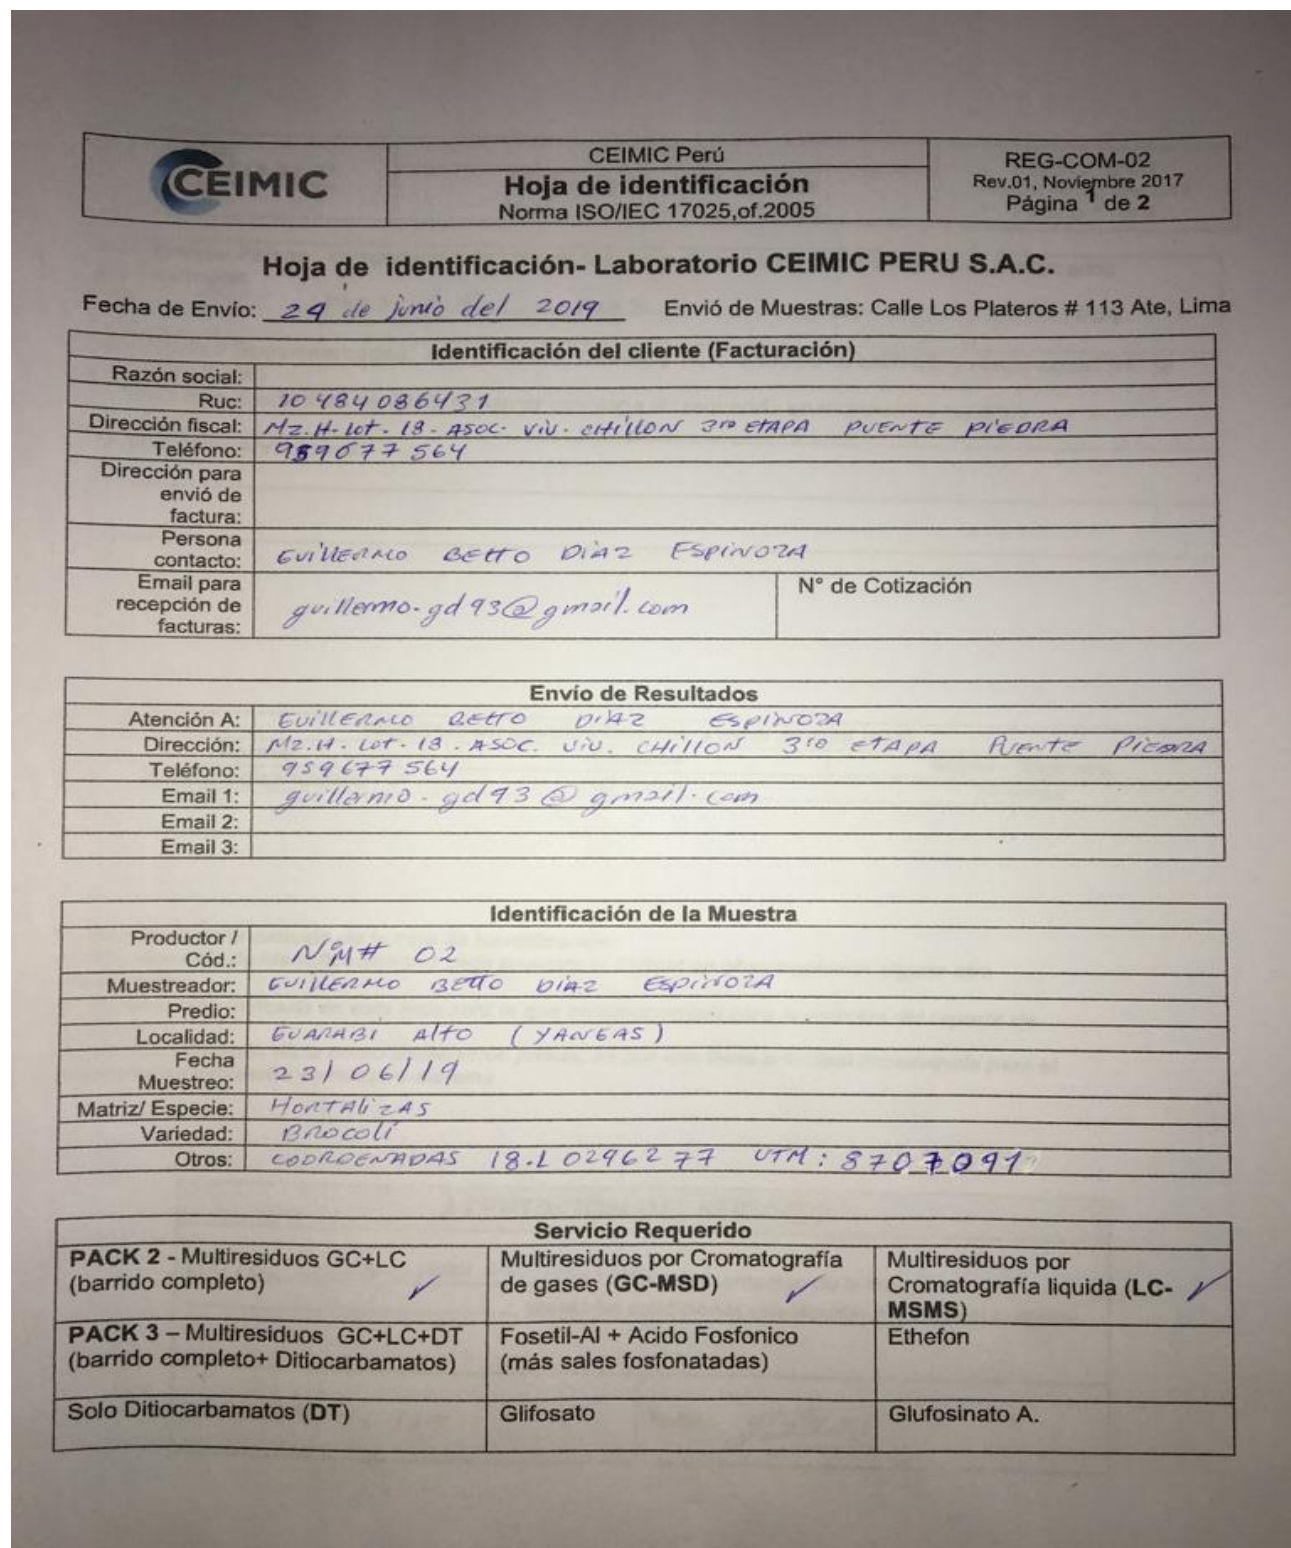 CEIMIC
CEIMIC Perú
Hoja de identificación
Norma ISO/IEC 17025,of.2005
REG-COM-02
Rev.01, Noviembre 2017
Página 1 de 2
Hoja de identificación- Laboratorio CEIMIC PERU S.A.C.
Fecha de Envío: 24 de junio del 2019 Envió de Muestras: Calle Los Plateros # 113 Ate, Lima
Identificación del cliente (Facturación)
Razón social:
Ruc: 10484086431
Dirección fiscal: Mz. H. Lot. 18. ASOC. ViV. CHiLLON 3ra ETAPA PUENTE PIEDRA
Teléfono: 959677564
Dirección para
envió de
factura:
Persona
contacto: GUILLERMO BETTO DiAZ ESPINOZA
Email para
recepción de
facturas: guillermo.gd93@gmail.com
N° de Cotización
Envío de Resultados
Atención A: GUILLERMO BETTO DIAZ ESPINOZA
Dirección: Mz. H. Lot. 18. ASOC. ViV. CHILLON 3ra ETAPA PUENTE PIEDRA
Teléfono: 959677564
Email 1: guillermo.gd93@gmail.com
Email 2:
Email 3:
Identificación de la Muestra
Productor /
Cód.: N°M# 02
Muestreador: GUILLERMO BETTO DIAZ ESPINOZA
Predio:
Localidad: GUARABI Alto (YANGAS)
Fecha
Muestreo: 23/06/19
Matriz/ Especie: HORTALIZAS
Variedad: BROCOLI
Otros: COORDENADAS 18.L 0296277 UTM: 8707091
Servicio Requerido
PACK 2 - Multiresiduos GC+LC
(barrido completo) ✓
Multiresiduos por Cromatografía
de gases (GC-MSD) ✓
Multiresiduos por
Cromatografía liquida (LC-
MSMS) ✓
PACK 3 – Multiresiduos GC+LC+DT
(barrido completo+ Ditiocarbamatos)
Fosetil-Al + Acido Fosfonico
(más sales fosfonatadas)
Ethefon
Solo Ditiocarbamatos (DT)
Glifosato
Glufosinato A.